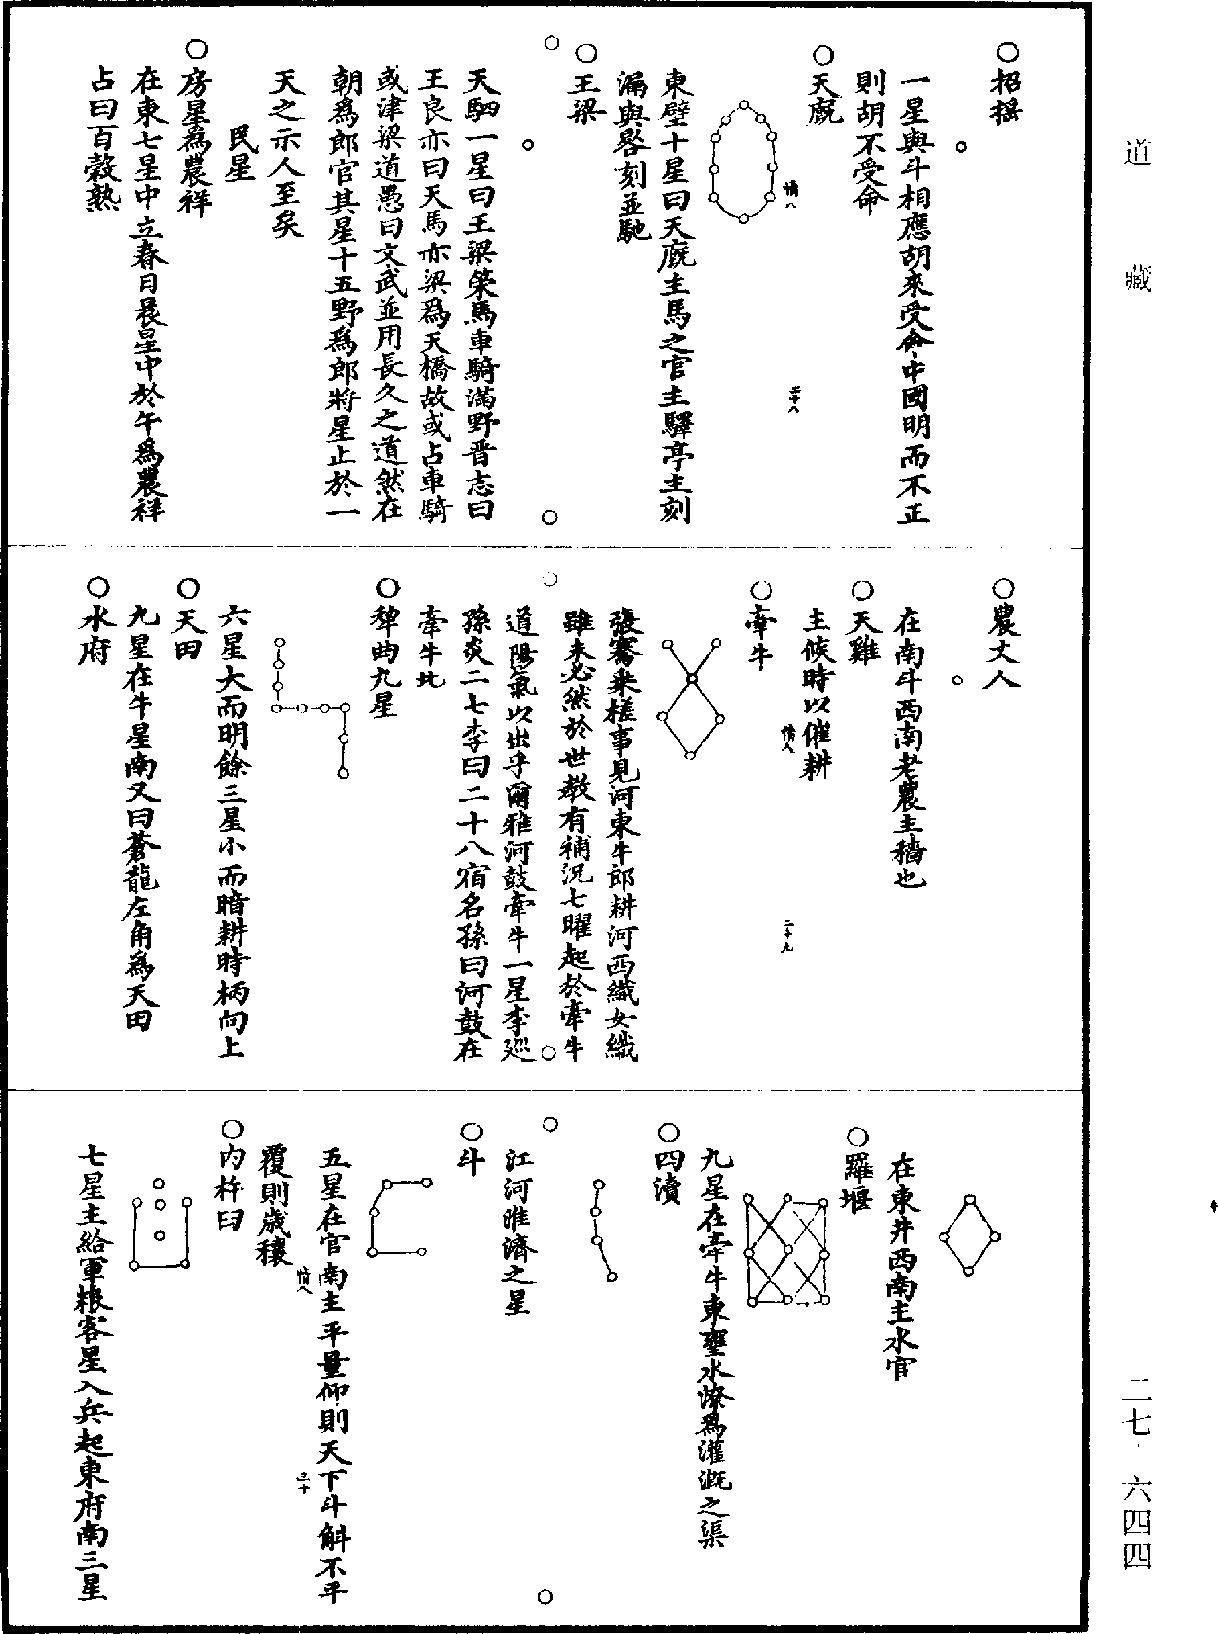 道藏
○招搖
一星與斗相應胡來受命中國明而不正
則胡不受命
○天廄
情八
二十八
東壁十星曰天廐主馬之官主驛亭主刻
漏與晷刻並馳
○王梁
天駟一星曰王梁策馬車騎滿野晋志曰
王良亦曰天馬亦梁爲天橋故或占車騎
或津梁道愚曰文武並用長久之道然在
朝爲郎官其星十五野爲郎將星止於一
天之示人至矣
民星
○房星爲農祥
在東七星中立春日晨星中於午爲農祥
占曰百穀熟
○農丈人
在南斗西南老農主穡也
○天雞
主候時以催耕
情八
二十九
○牽牛
張騫乗槎事見河東牛郎耕河西織女織
雖未必然於世教有補況七曜起於牽牛
道陽氣以出乎爾雅河鼓牽牛一星李廵
孫炎二七李曰二十八宿名孫曰河鼓在
牽牛北
○犂曲九星
六星大而明餘三星小而暗耕時柄向上
○天田
九星在牛星南又曰蒼龍左角爲天田
○水府
在東井西南主水官
○羅堰
九星在牽牛東壅水潦爲灌溉之渠
○四瀆
江河淮濟之星
○斗
五星在官南主平量仰則天下斗斛不平
覆則歲穰
情八
三十
○内杵臼
七星主給軍粮客星入兵起東府南三星
二七·六四四